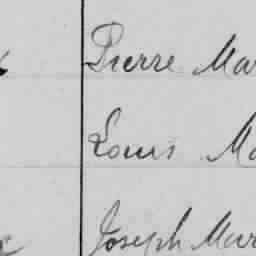 Pierre Mar
Louis Ma
Joseph Mar